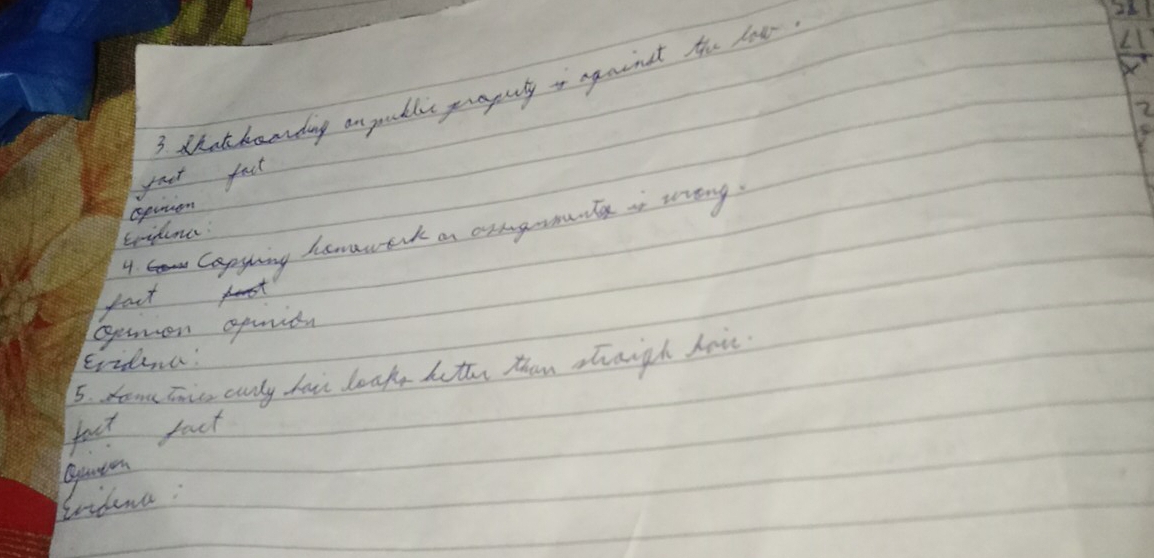 3. Skateboarding on public property is against the law.
fact fact
Opinion
Evidence:
4. Copying homework or assignments is wrong.
fact fact
Opinion opinion
Evidence:
5. Sometimes curly hair looks better than straigh hair.
fact fact
Opinion
Evidence: